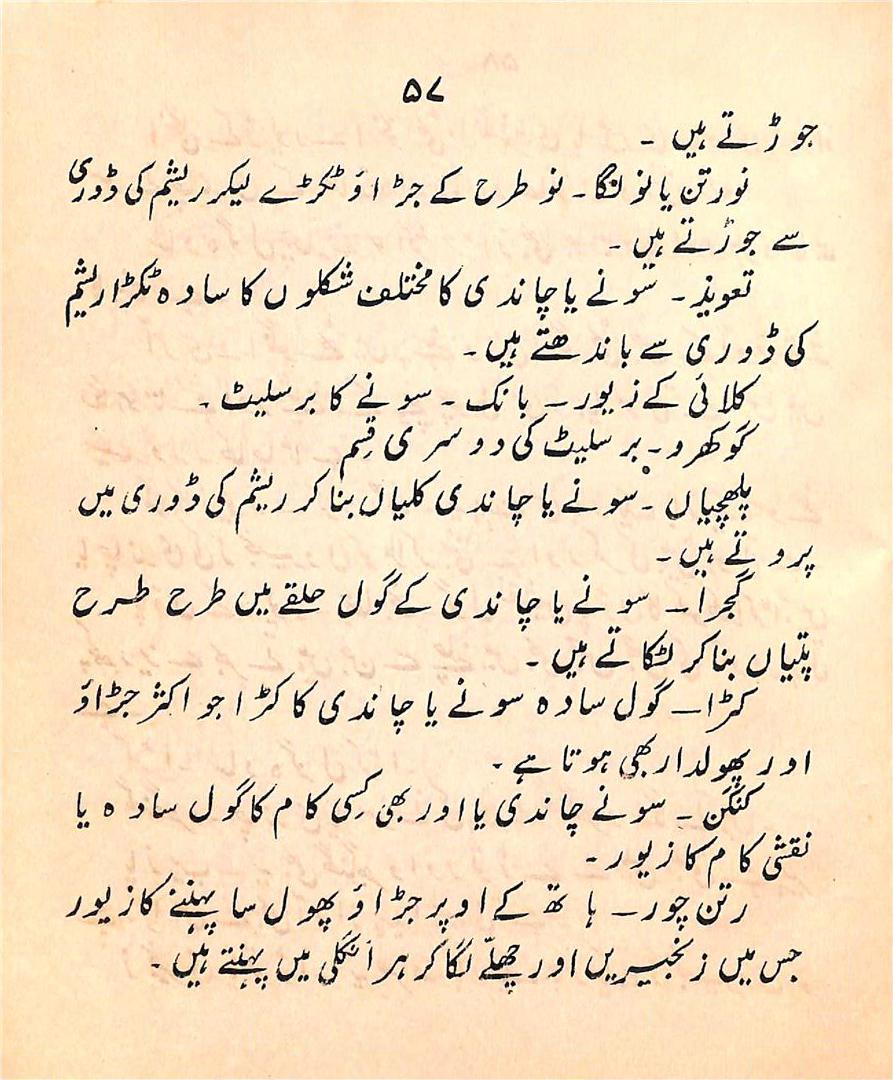 ۵۷
جوڑتے ہیں ۔
نورتن یا نو لنگا ۔ نو طرح کے جڑاؤ ٹکڑے لیکر ریشم کی ڈوری
سے جوڑتے ہیں ۔
تعویذ ۔ سونے یا چاندی کا مختلف شکلوں کا سادہ ٹکڑا ریشم
کی ڈوری سے باندھتے ہیں ۔
کلائی کے زیور ۔ بانک ۔ سونے کا برسلیٹ ۔
گوکھرو ۔ برسلیٹ کی دوسری قسم
پلھچیاں ۔ سونے یا چاندی کلیاں بنا کر ریشم کی ڈوری میں
پروتے ہیں ۔
گجرا ۔ سونے یا چاندی کے گول حلقے میں طرح طرح
پتیاں بنا کر لٹکاتے ہیں ۔
کڑا ۔ گول سادہ سونے یا چاندی کا کڑا جو اکثر جڑاؤ
اور پھولدار بھی ہوتا ہے ۔
کنگن ۔ سونے چاندی یا اور بھی کسی کام کا گول سادہ یا
نقشی کام کا زیور ۔
رتن چور ۔ ہاتھ کے اوپر جڑاؤ پھول سا پہننے کا زیور
جس میں زنجیریں اور چھلّے لگا کر ہر اُنگلی میں پہنتے ہیں ۔